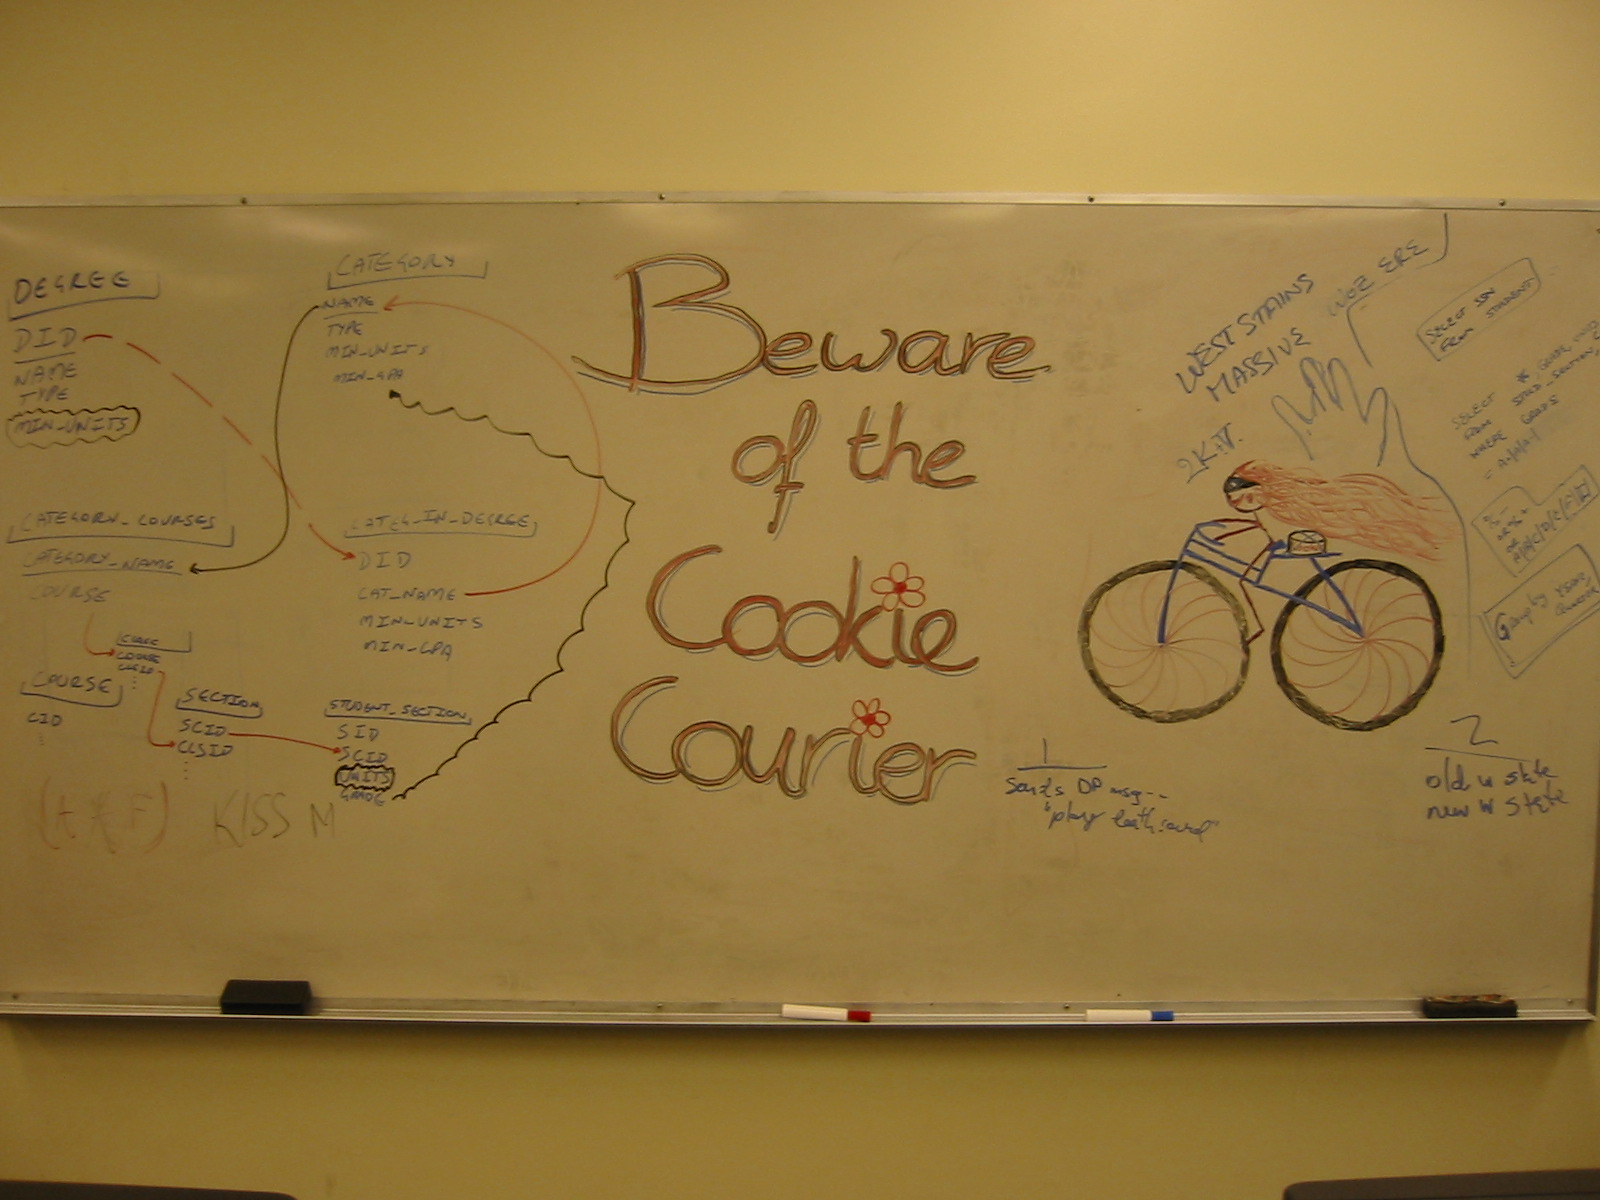 DEGREE
DID
NAME
TYPE
MIN_UNITS
CATEGORY
NAME
TYPE
MIN_UNITS
MIN_GPA
CATEGORY_COURSES
CATEGORY_NAME
COURSE
CATEG_IN_DEGREE
DID
CAT_NAME
MIN_UNITS
MIN_GPA
COURSE
CID
COURSE
CLSID
SECTION
SCID
CLSID
STUDENT_SECTION
SID
SCID
UNITS
GRADE
KISS M
Beware
of the
Cookie
Courier
WEST STAINS
MASSIVE WOZ ERE
SELECT SSN
FROM STUDENT
SELECT *
FROM
WHERE GRADE
Group by
1
DP msg--
"play
2
old w state
new w state